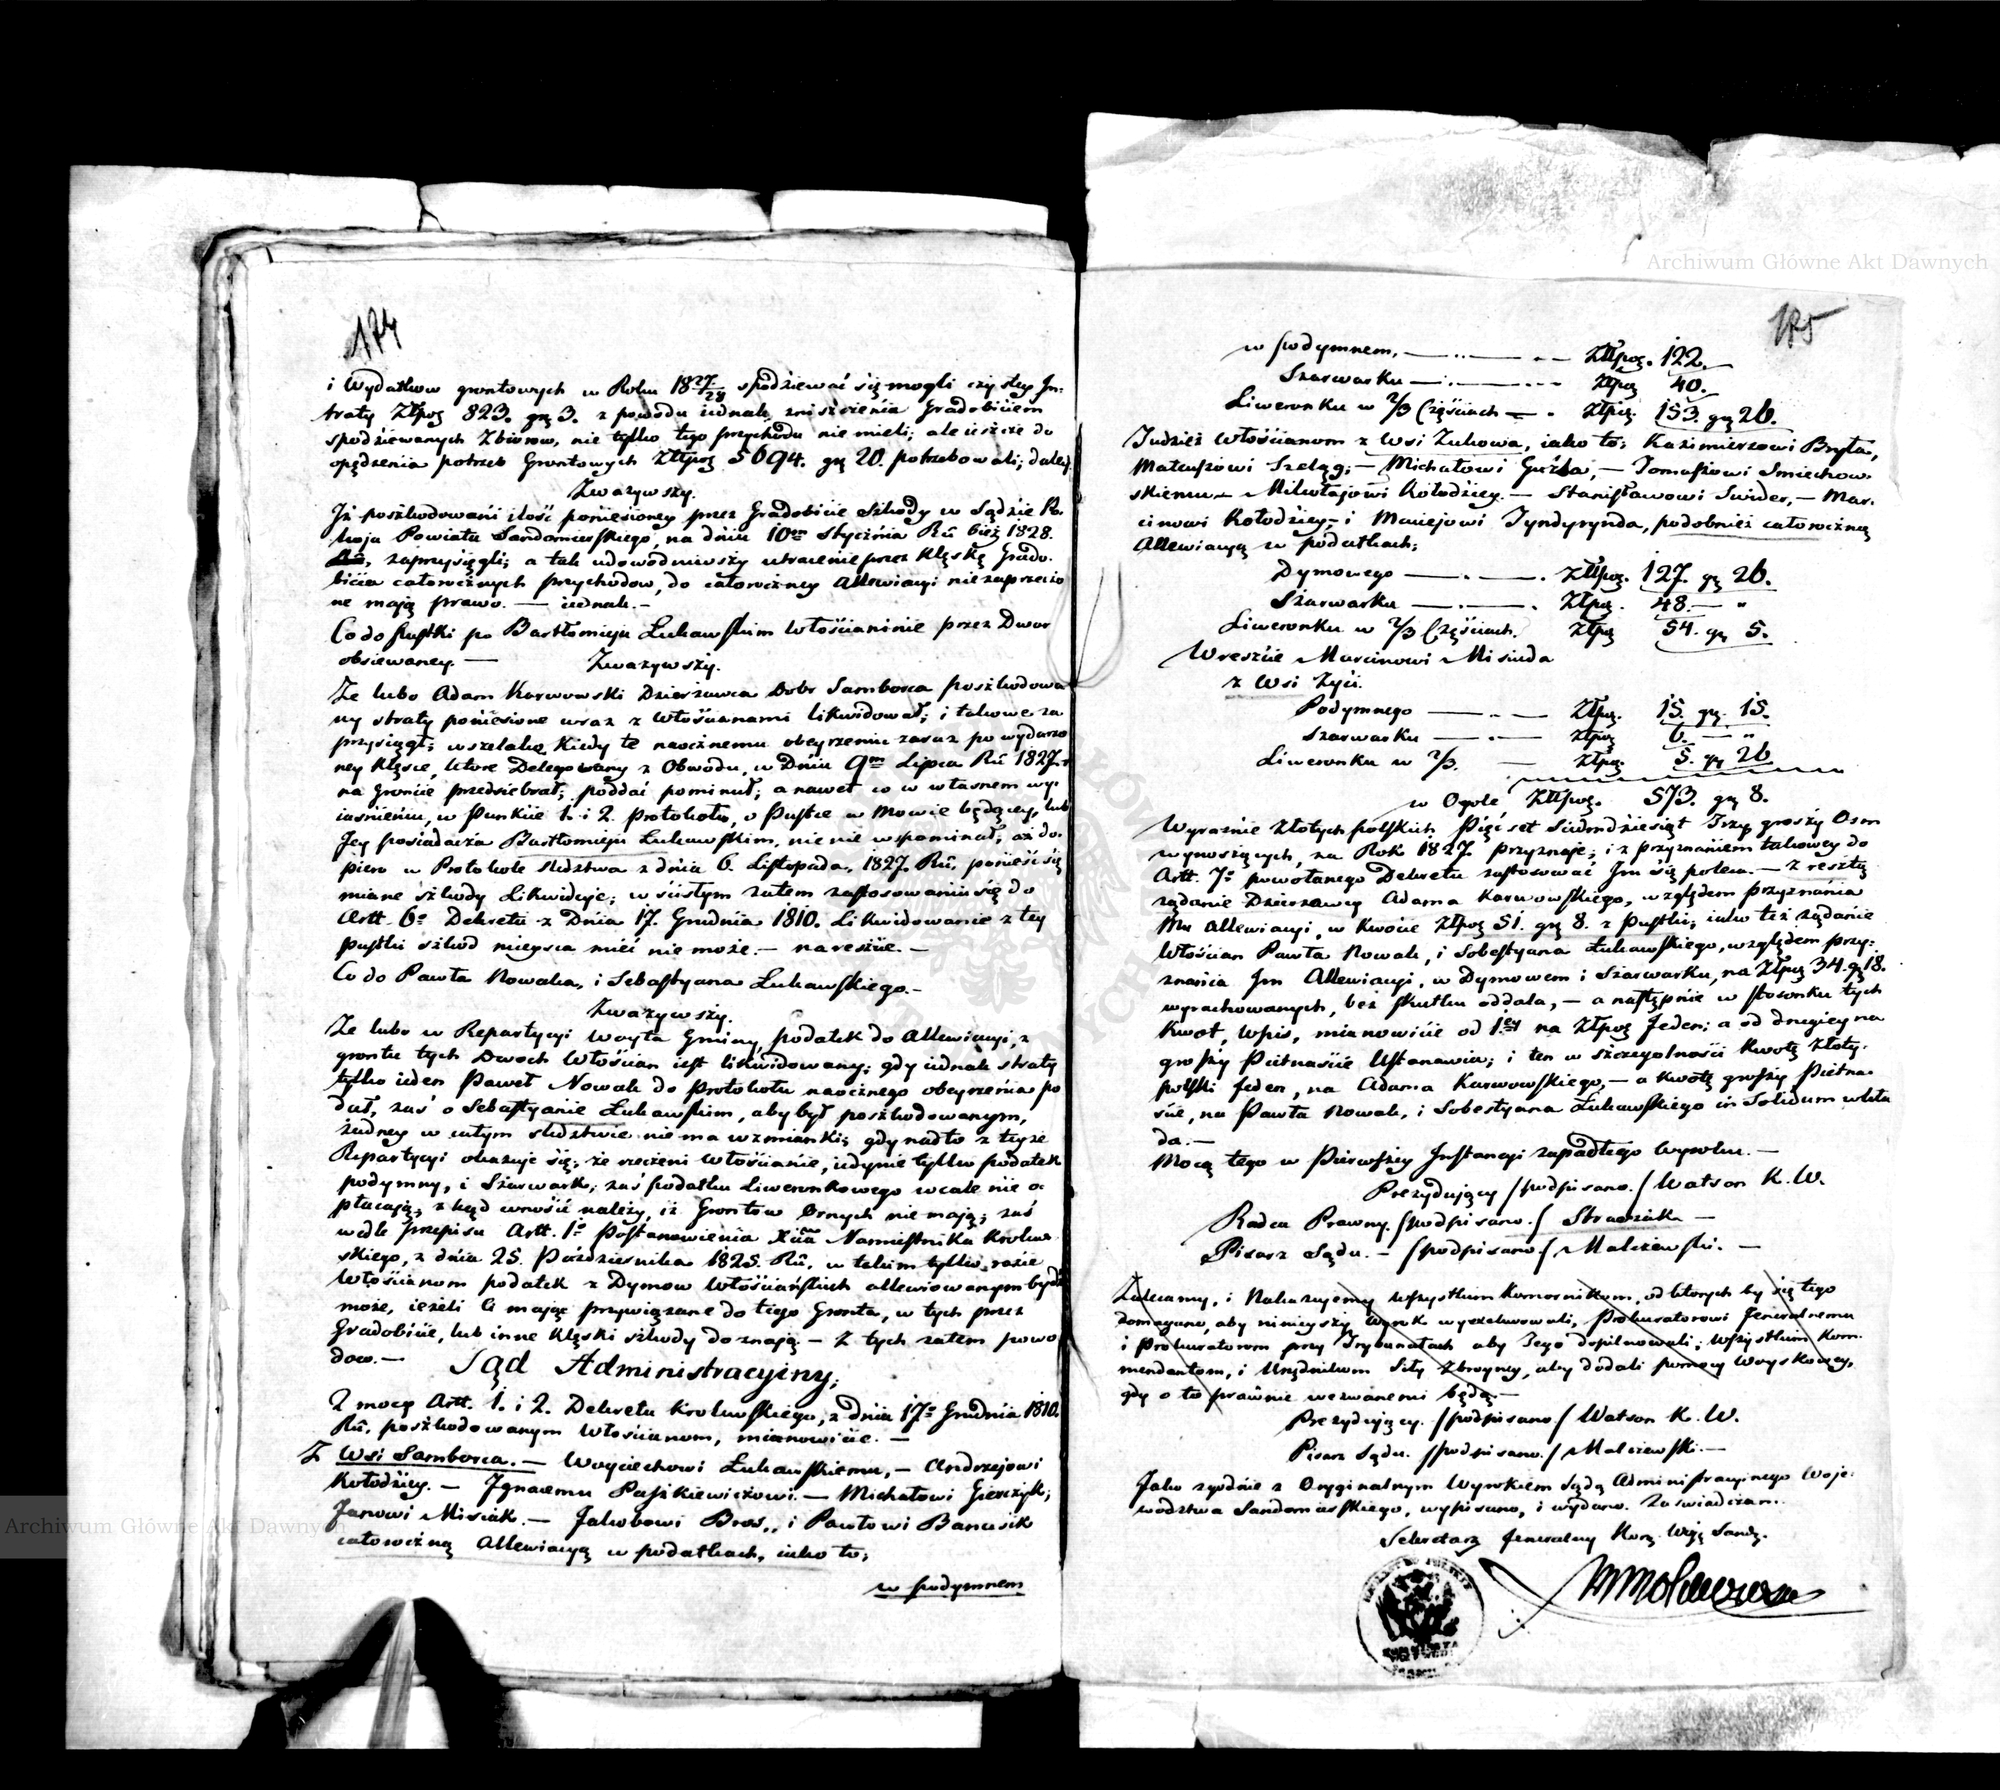 174
i Wydatkow grontowych w Roku 1827/28 spodziewać się mogli czystey In-
traty Złłpoz 823. gr 3. z powodu iednak zniszczenia Gradobiciem
spodziewanych Zbiorow, nie tylko tego przychodu nie mieli; ale ieszcze do
opędzenia potrzeb Grontowych Złłpoz 5694. gr 20. potrzebowali; daley
Zważywszy.
Iż poszkodowani ilość poniesioney przez Gradobicie Szkody w Sądzie Po-
koju Powiatu Sandomirskiego, na dniu 10m Stycznia Rū bież 1828.
zaprzysięgli; a tak udowodniwszy utracenie przez Klęskę Grado-
bicia całorocznych przychodow, do całoroczney Allewiacyi niezaprzeczo
ne mają prawo. — iednak. –
Co do Pustki po Bartłomieju Łukawskim Włościaninie przez Dwor
obsiewaney. —
Zważywszy.
Że lubo Adam Karwowski Dzierżawca Dobr Samborca poszkodowa
ny straty poniesione wraz z Włościanami likwidował; i takowe za
przysiągł; wszelako Kiedy te naocznemu obeyrzeniu zaraz po wydarzo
ney Klęsce, ktore Delegowany z Obwodu, w Dniu 9m Lipca Rū 1827.
na gruncie przedsiebrał; poddać pominuł; a nawet co w własnem wy-
iaśnieniu, w Punkcie 1. i 2. Protokołu, o Pustce w Mowie będącey, lub
Jey posiadaczu Bartłomieju Łukawskim, nic nie wspominał; aż do-
piero w Protokole śledztwa z dnia 6. Listopada, 1827. Rū, ponieść się
miane szkody Likwiduje; w ścisłym zatem zastosowaniu się do
Artt. 6o Dekretu z Dnia 17. Grudnia 1810. Likwidowanie z tey
pustki szkod mieysca mieć nie może. — nareszcie. –
Co do Pawła Nowaka, i Sebastyana Łukawskiego. –
Zważywszy.
Że lubo w Repartycyi Woyta Gminy, podatek do Allewiacyi, z
grontu tych Dwoch Włościan iest likwidowany; gdy iednak straty
tylko ieden Paweł Nowak do Protokołu naocznego obeyrzenia po
dał, zaś o Sebastyanie Łukawskim, aby był poszkodowanym,
żadney w całym śledztwie nie ma wzmianki; gdy nadto z teyże
Repartycyi okazuje się, że rzeczeni Włościanie, iedynie tylko podatek
podymny, i Szarwark, zaś podatku Liwerunkowego wcale nie o-
płacają, z kąd wnosić należy, iż Grontow Ornych nie mają; zaś
wedle przepisu Artt. 1o Postanowienia Xcia Namiestnika Krolew-
skiego, z dnia 25. Października 1825. Rū, w takim tylko razie
Włościanom podatek z Dymow Włościańskich allewiowanym bydź
może, ieżeli Ci mając przywiązane do tiego Gronta, w tych przez
Gradobicie, lub inne Klęski szkody doznają — Z tych zatem powo
dow. —
Sąd Administracyiny;
Z mocy Artt. 1. i 2. Dekretu Krolewskiego, z dnia 17o Grudnia 1810.
Rū, poszkodowanym Włościanom, mianowicie. —
Z Wsi Samborca. — Woyciechowi Łukawskiemu, — Andrzejowi
Kołodziey. — Ignacemu Paszkiewiczowi. — Michałowi Gierczyk;
Janowi Misiak. — Jakobowi Bros,, i Pawłowi Banasik
całoroczną Allewiacyą w podatkach, iako to;
w podymnem
175
w podymnem, — Złłpoz. 122.
Szarwarku — Złłpoz 40.
Liwerunku w 2/3 Częściach — Złłpoz. 153. gr 26.
Tudzież Włościanom z Wsi Zukowa, iako to; Kaźimierzowi Bryła,
Mateuszowi Szeląg; — Michałowi Guzla, — Tomaszowi Smiechow-
skiemu — Mikołajowi Kołodziey. — Stanisławowi Swider, — Mar-
cinowi Kołodziey, i Maciejowi Tyndyrynda, podobnież całoroczną
Allewiacyą w podatkach;
Dymowego — Złłpoz. 127. gr 26.
Szarwarku — Złłpoz. 48. — „
Liwerunku w 2/3 Częściach. Złłpoz 54. gr 5.
Wreszcie Marcinowi Misiuda
z Wsi Życi.
Podymnego — Złłpoz. 15. gr. 15.
Szarwarku — Złłpoz 6. — „
Liwerunku w 2/3. — Złłpoz. 5. gr 26
w Ogole Złłpoz. 573. gr 8.
Wyraźnie Złotych polskich Pięćset Siedmdziesiąt Trzy groszy Osm
wynoszących, za Rok 1827. przyznaje; i z przyznaniem takowey do
Artt. 7o powołanego Dekretu zastosować Im się poleca. — Z resztą
żądanie Dzierżawcy Adama Karwowskiego, względem przyznania
Mu Allewiacyi, w Kwocie Złłpoz 51. gr 8. z Pustki; iako też żądanie
Włościan Pawła Nowak, i Sobestyana Łukawskiego, względem przy-
znania Im Allewiacyi, w Dymowem i Szarwarku, na Złłpoz 34. gr 18.
wyrachowanych, bez skutku oddala, — a następnie w stosunku tych
Kwot, Wpis, mianowicie od 1ey na Złłpoz Jeden; a od drugiey na
groszy Piętnaście Ustanawia; i ten w szczegolności Kwotę Złoty-
polski Jeden, na Adama Karwowskiego, — a Kwotę groszy Piętna-
ście, na Pawła Nowak, i Sobestyana Łukawskiego in Solidum wkła
da. —
Mocą tego w Pierwszey Instancyi zapadłego Wyroku. —
Prezydujący /podpisano./ Watson K. W.
Radca Prawny. /podpisano./ Straszak —
Pisarz Sądu. — /podpisano./ Malczewski. —
Zalecamy, i Nakazujemy Wszystkim Komornikom, od ktorych by się tego
domagano, aby ninieyszy Wyrok wyexekwowali, Prokuratorowi Jeneralnemu
i Prokuratorom przy Trybunałach aby Jego dopilnowali; Wszystkim Kom-
mendantom, i Urzędnikom Siły Zbroyney, aby dodali pomocy Woyskowey,
gdy o to prawnie wezwanemi będą. —
Prezydujący. /podpisano./ Watson K. W.
Pisarz Sądu. /podpisano./ Malczewski. —
Jako zgodnie z Oryginalnym Wyrokiem Sądu Administracyinego Woje-
wodztwa Sandomirskiego, wypisano, i wydano. Zaświadczam.
Sekretarz Jeneralny Kom. Wdz Sand.
Archiwum Główne Akt Dawnych
Archiwum Główne Akt Dawnych